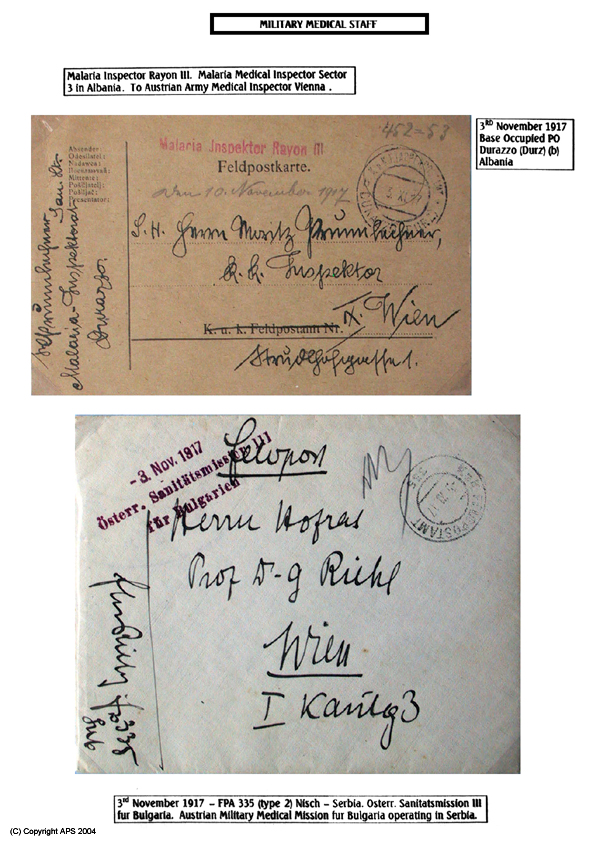 MILITARY MEDICAL STAFF
Malaria Inspector Rayon III. Malaria Medical Inspector Sector
3 in Albania. To Austrian Army Medical Inspector Vienna .
3RD November 1917
Base Occupied PO
Durazzo (Durz) (b)
Albania
Absender:
Odesílatel:
Nadawca:
Mittente:
Pošiljatelj:
Pošiljač:
Presentator:
Malaria-Inspektorat
Durazzo.
452-53
Malaria Inspektor Rayon III
Feldpostkarte.
den 10. November 1917
S. H. Herrn Moritz
K. K. Inspektor
K. u. k. Feldpostamt Nr.
IX. Wien
Strudlhofgasse 1.
-3. Nov. 1917
Österr. Sanitätsmission III
für Bulgarien
Feldpost
Herrn Hofrat
Prof D-g Riehl
Wien
I
335
3rd November 1917 – FPA 335 (type 2) Nisch – Serbia. Osterr. Sanitatsmission III
fur Bulgaria. Austrian Military Medical Mission fur Bulgaria operating in Serbia.
(C) Copyright APS 2004